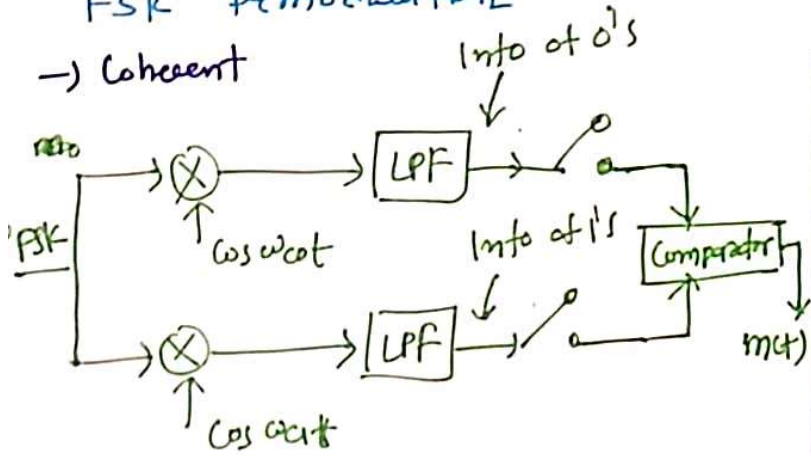 FSK
→ Coherent
Info of 0's
LPF
cos ωcot
FSK
Info of 1's
Comparator
m(t)
LPF
cos ωc1t